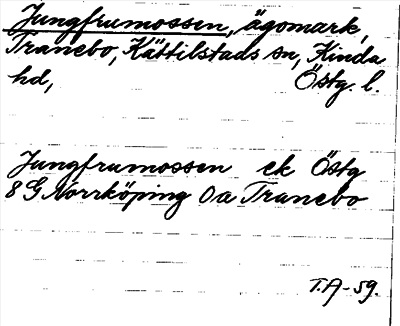 Jungfrumossen, ägomark,
Tranebo, Kättilstads sn, Kinda
hd, Östg. l.
Jungfrumossen ek Östg
8 G Norrköping 0a Tranebo
T.A-59.